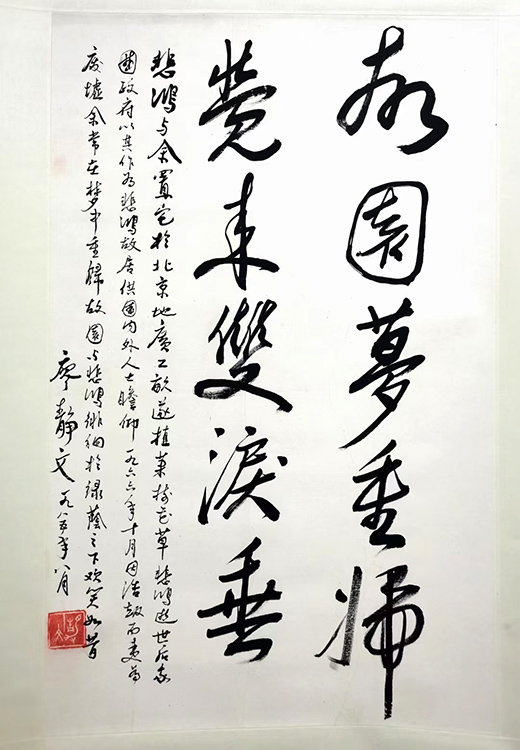 故園夢重歸
覺來雙淚垂
悲鴻与余置宅於北京地廣二畝遂植菓樹花草悲鴻逝世后我
國政府以其作为悲鴻故居供國内外人士瞻仰一九六六年十月因浩劫而夷为
废墟余常在梦中重歸故園与悲鴻徘徊於绿蔭之下欢笑如昔
廖靜文一九八五年八月